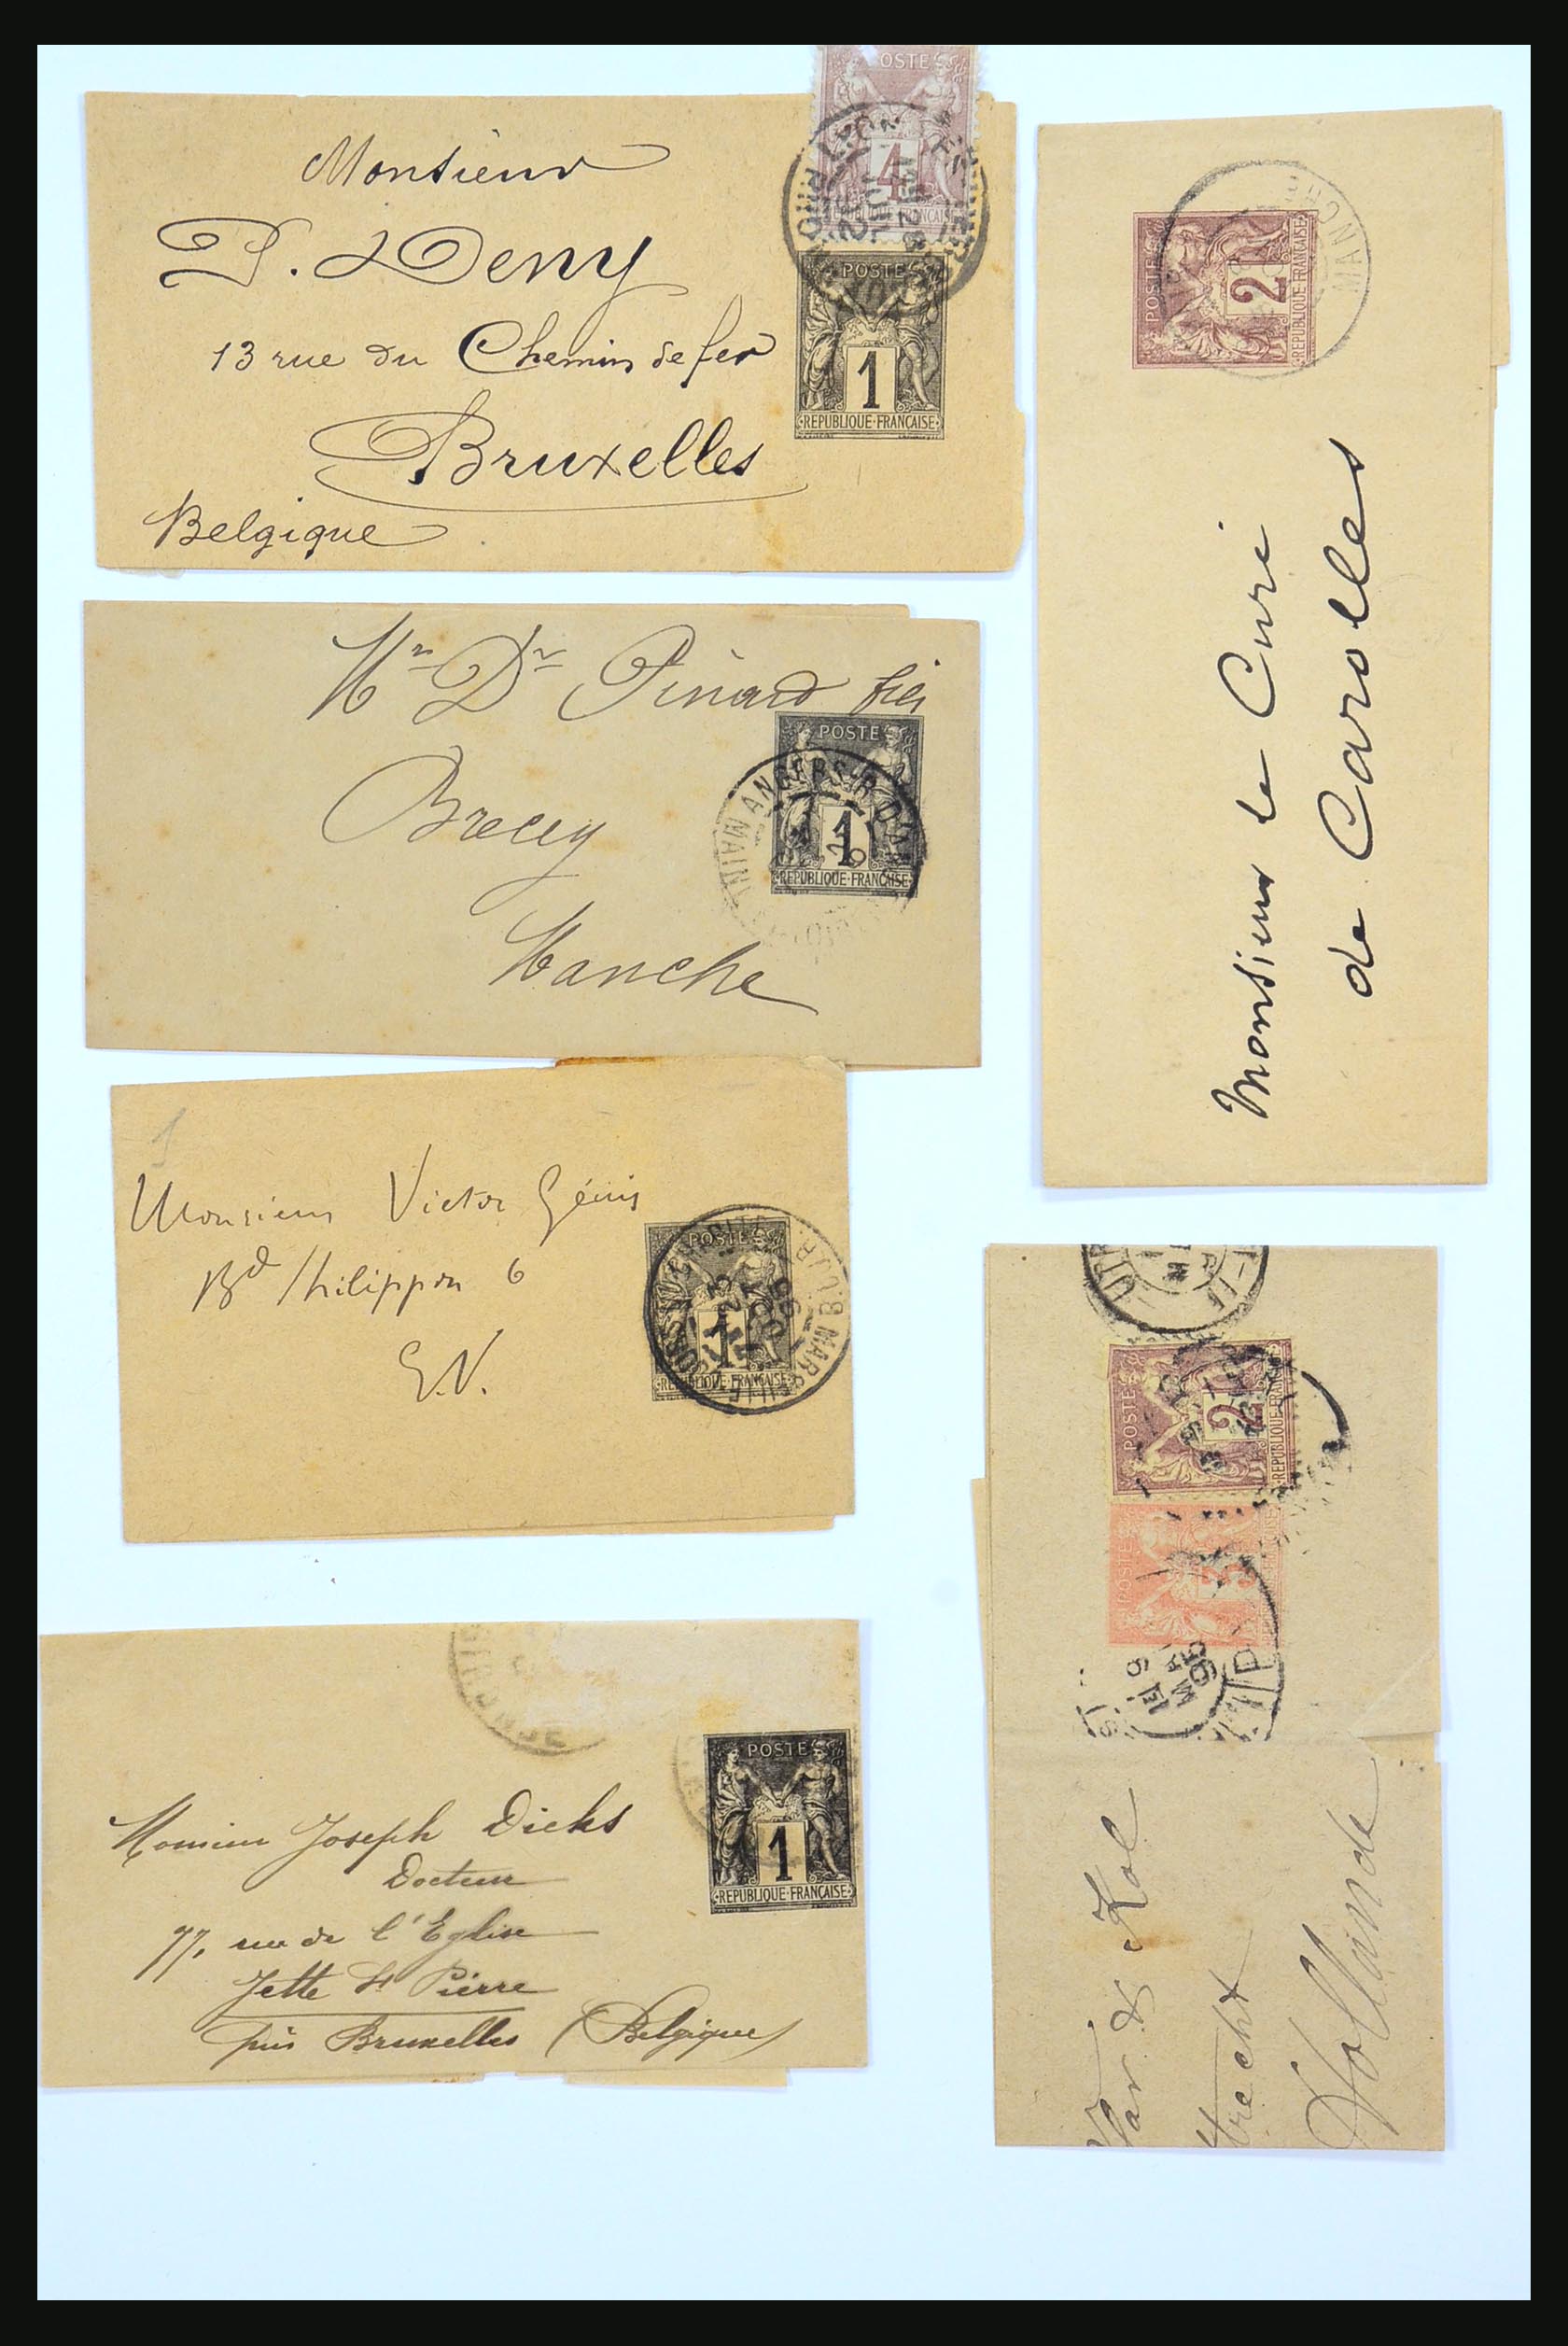 POSTE
4
REPUBLIQUE FRANÇAISE
Monsieur
P. Deny
13 rue du Chemin de fer
Bruxelles
Belgique
POSTE
1
REPUBLIQUE FRANÇAISE
Mr Dr Pinard fils
Brecey
Manche
POSTE
1
REPUBLIQUE FRANÇAISE
ANGERS
MAIN
1
Monsieur Victor Génis
Bd Philippon 6
E.V.
POSTE
1
REPUBLIQUE FRANÇAISE
MARSEILLE
Monsieur Joseph Dicks
Docteur
77, rue de l'Eglise
Jette St Pierre
près Bruxelles (Belgique)
POSTE
1
REPUBLIQUE FRANÇAISE
GIRONDE
MANCHE
POSTE
2
REPUBLIQUE FRANÇAISE
Monsieur le Curé
de Carolles
POSTE
2
REPUBLIQUE FRANÇAISE
POSTE
3
& Kol
trecht
Hollande